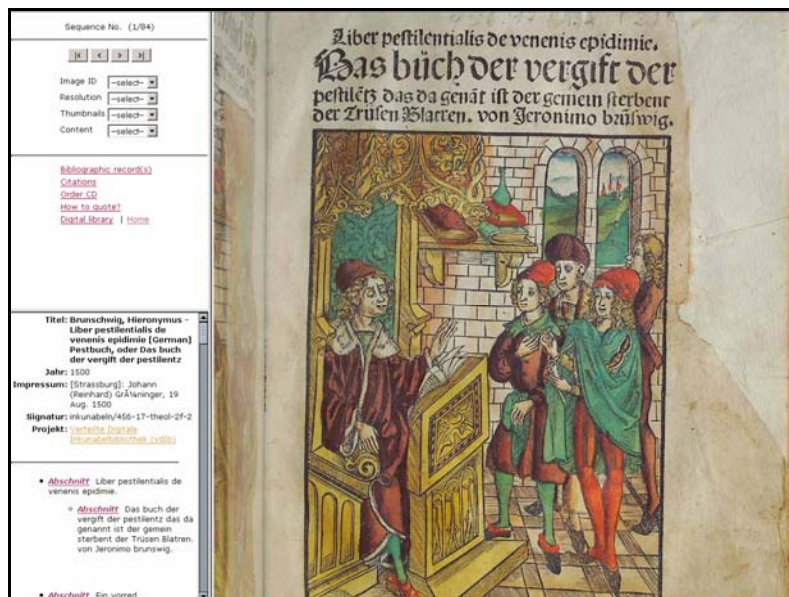 Sequence No. (1/84)
|< < > >|
Image ID --select--
Resolution --select--
Thumbnails --select--
Content --select--
Bibliographic record(s)
Citations
Order CD
How to quote?
Digital library | Home
Titel: Brunschwig, Hieronymus -
Liber pestilentialis de
venenis epidimie [German]
Pestbuch, oder Das buch
der vergift der pestilentz
Jahr: 1500
Impressum: [Strassburg]: Johann
(Reinhard) GrÃ¼ninger, 19
Aug. 1500
Signatur: inkunabeln/456-17-theol-2f-2
Projekt: Verteilte Digitale
Inkunabelbibliothek (vdIb)
Abschnitt Liber pestilentialis de
venenis epidimie.
Abschnitt Das buch der
vergift der pestilentz das da
genannt ist der gemein
sterbent der Trüsen Blatren.
von Jeronimo brunswig.
Abschnitt Ein vorred
Liber pestilentialis de venenis epidimie.
Das büch der vergift der
pestilētz das da genāt ist der gemein sterbent
der Trüsen Blatren. von Jeronimo brüswig.